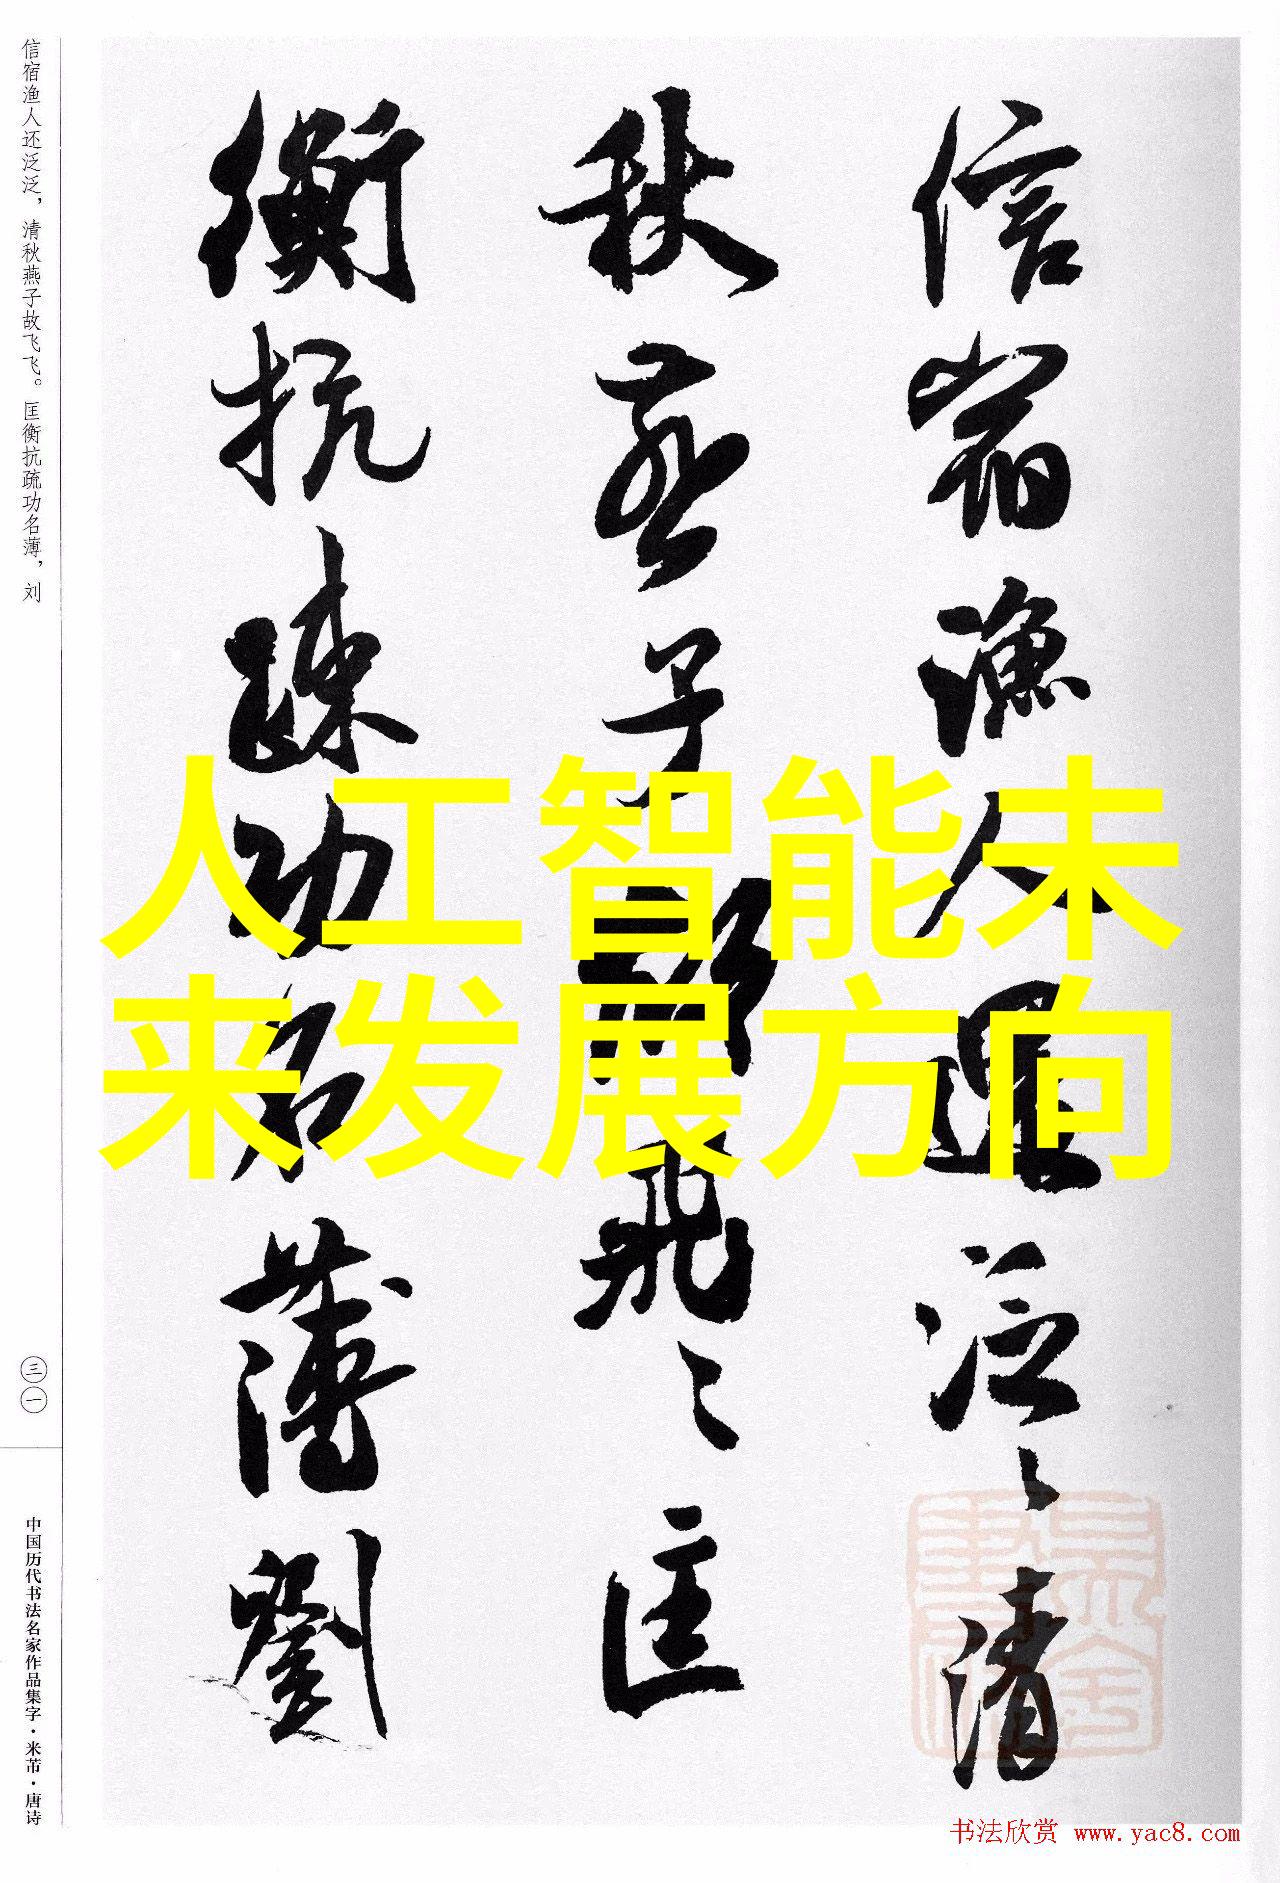 信宿渔人还泛泛，清秋燕子故飞飞。匡衡抗疏功名薄，刘
信宿漁人還泛〻清
秋燕子故飛〻匡
衡抗疏功名薄劉
人工智能未
来发展方向
三一
中国历代书法名家作品集字·米芾·唐诗
书法欣赏 www.yac8.com